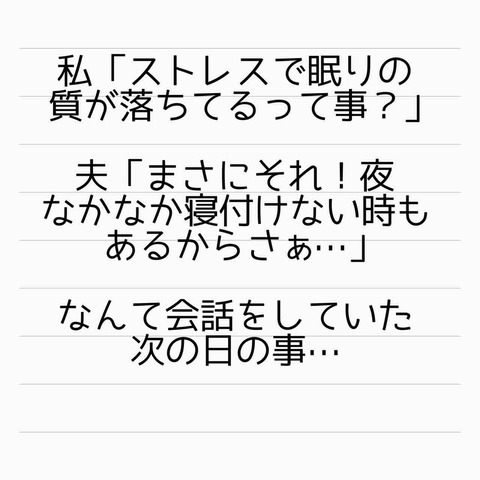 私「ストレスで眠りの
質が落ちてるって事？」
夫「まさにそれ！夜
なかなか寝付けない時も
あるからさぁ…」
なんて会話をしていた
次の日の事…